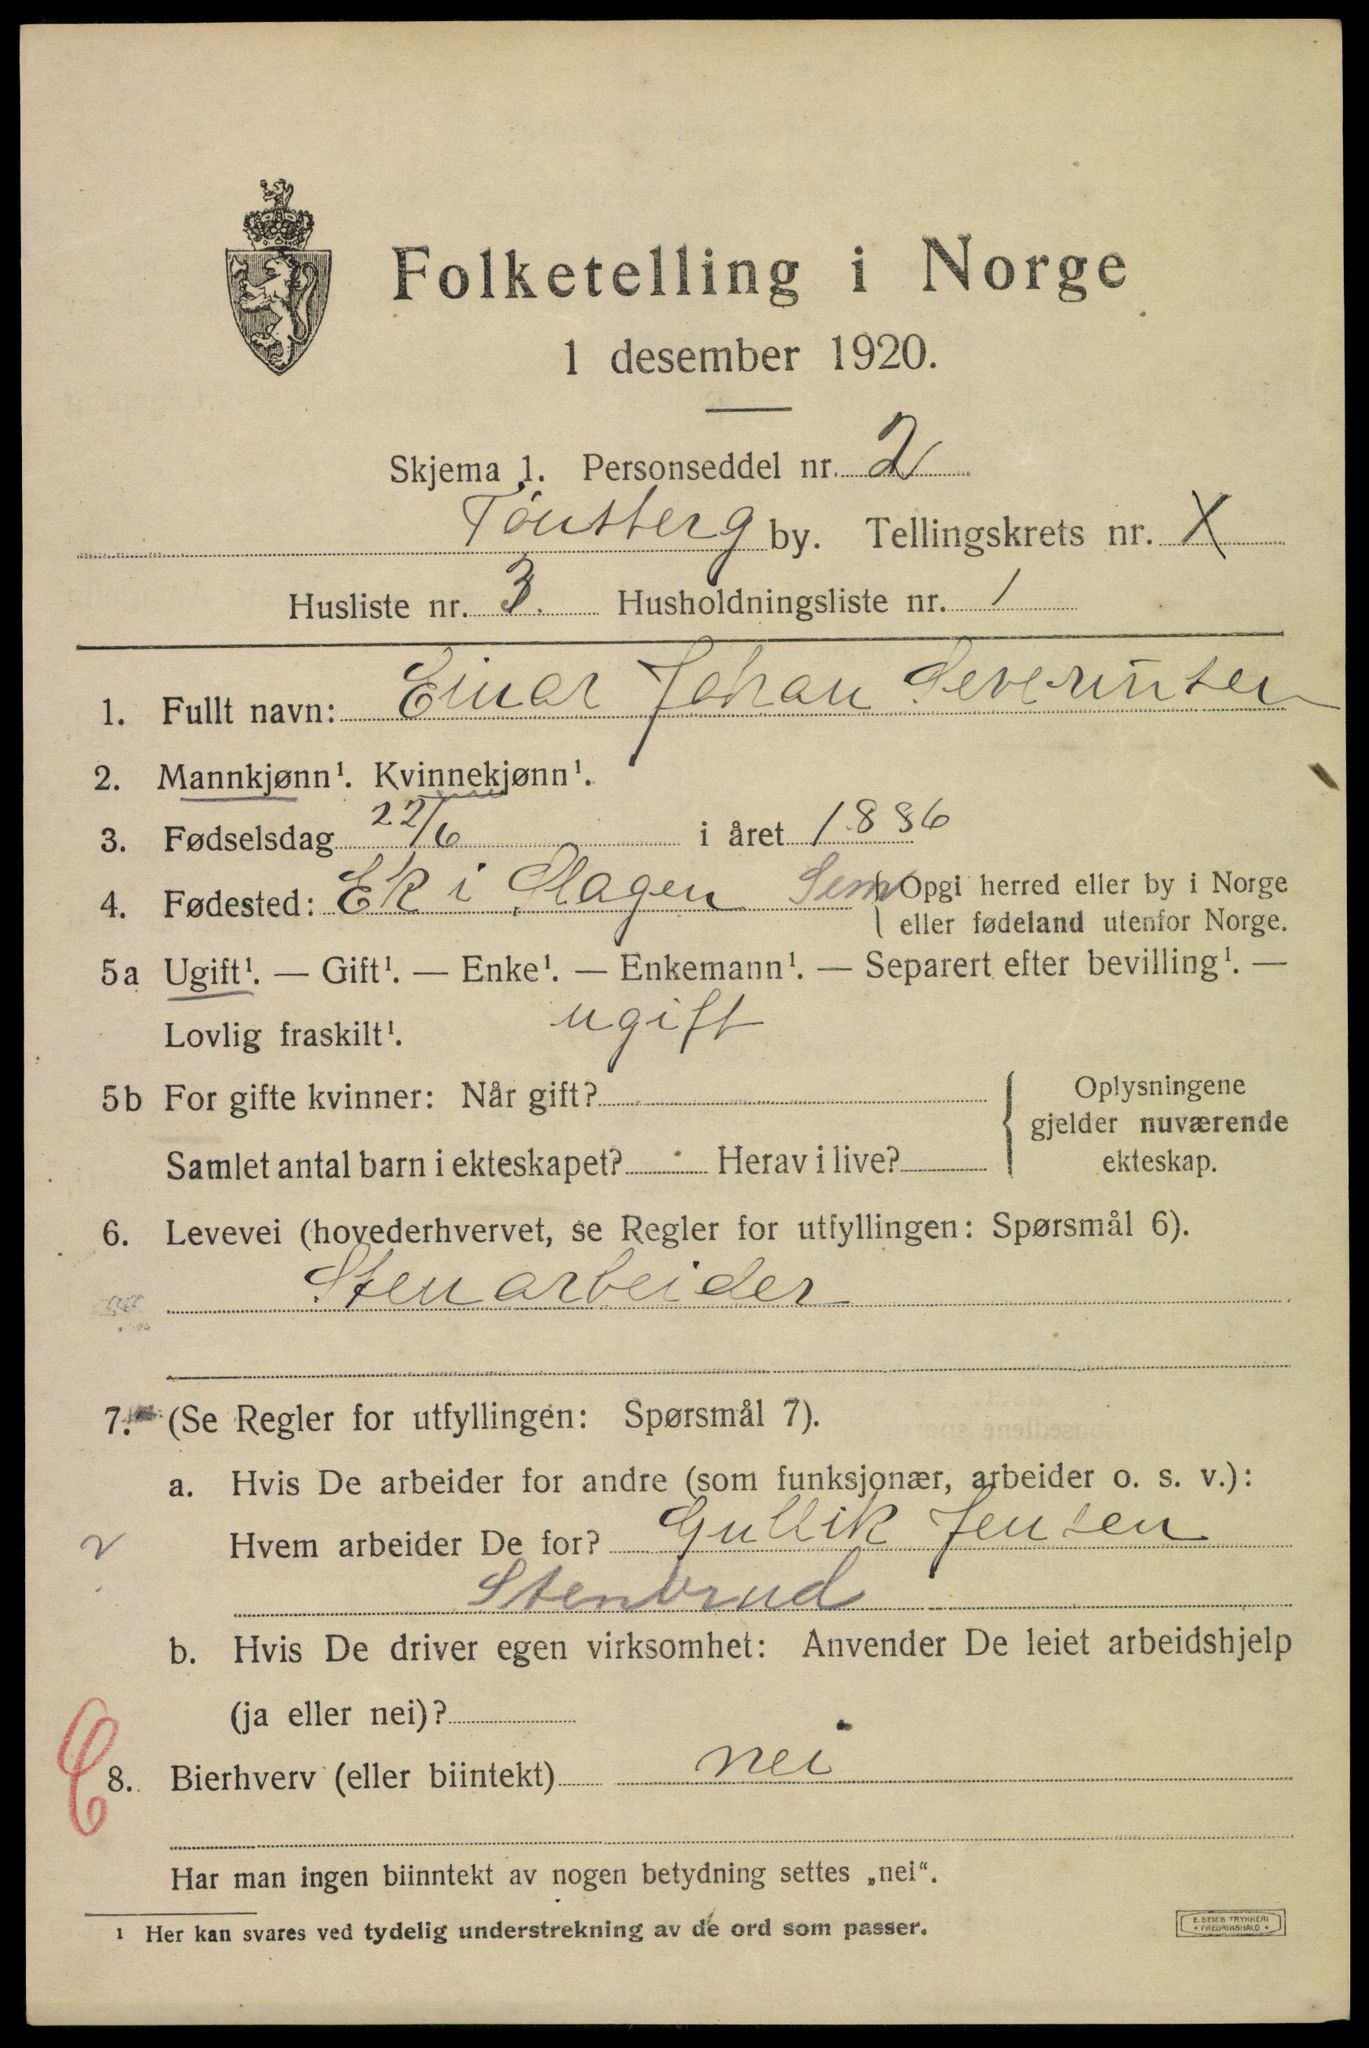 Folketelling i Norge
1 desember 1920.
Skjema 1. Personseddel nr. 2
Tönsberg by. Tellingskrets nr. X
Husliste nr. 3. Husholdningsliste nr. 1
1. Fullt navn: Einar Johan Severinsen
2. Mannkjønn¹. Kvinnekjønn¹.
3. Fødselsdag 22/6 i året 1886
4. Fødested: Ek i Slagen Sem { Opgi herred eller by i Norge
eller fødeland utenfor Norge.
5a Ugift¹. — Gift¹. — Enke¹. — Enkemann¹. — Separert efter bevilling¹. —
Lovlig fraskilt¹. ugift
5b For gifte kvinner: Når gift?
Samlet antal barn i ekteskapet? Herav i live?
{ Oplysningene
gjelder nuværende
ekteskap.
6. Levevei (hovederhvervet, se Regler for utfyllingen: Spørsmål 6).
Stenarbeider
7. (Se Regler for utfyllingen: Spørsmål 7).
a. Hvis De arbeider for andre (som funksjonær, arbeider o. s. v.):
Hvem arbeider De for? Gullik Jensen
Stenbrud
b. Hvis De driver egen virksomhet: Anvender De leiet arbeidshjelp
(ja eller nei)?
8. Bierhverv (eller biintekt) nei
Har man ingen biinntekt av nogen betydning settes „nei“.
¹ Her kan svares ved tydelig understrekning av de ord som passer.
E. SEM'S TRYKKERI
• FREDRIKSHALD •